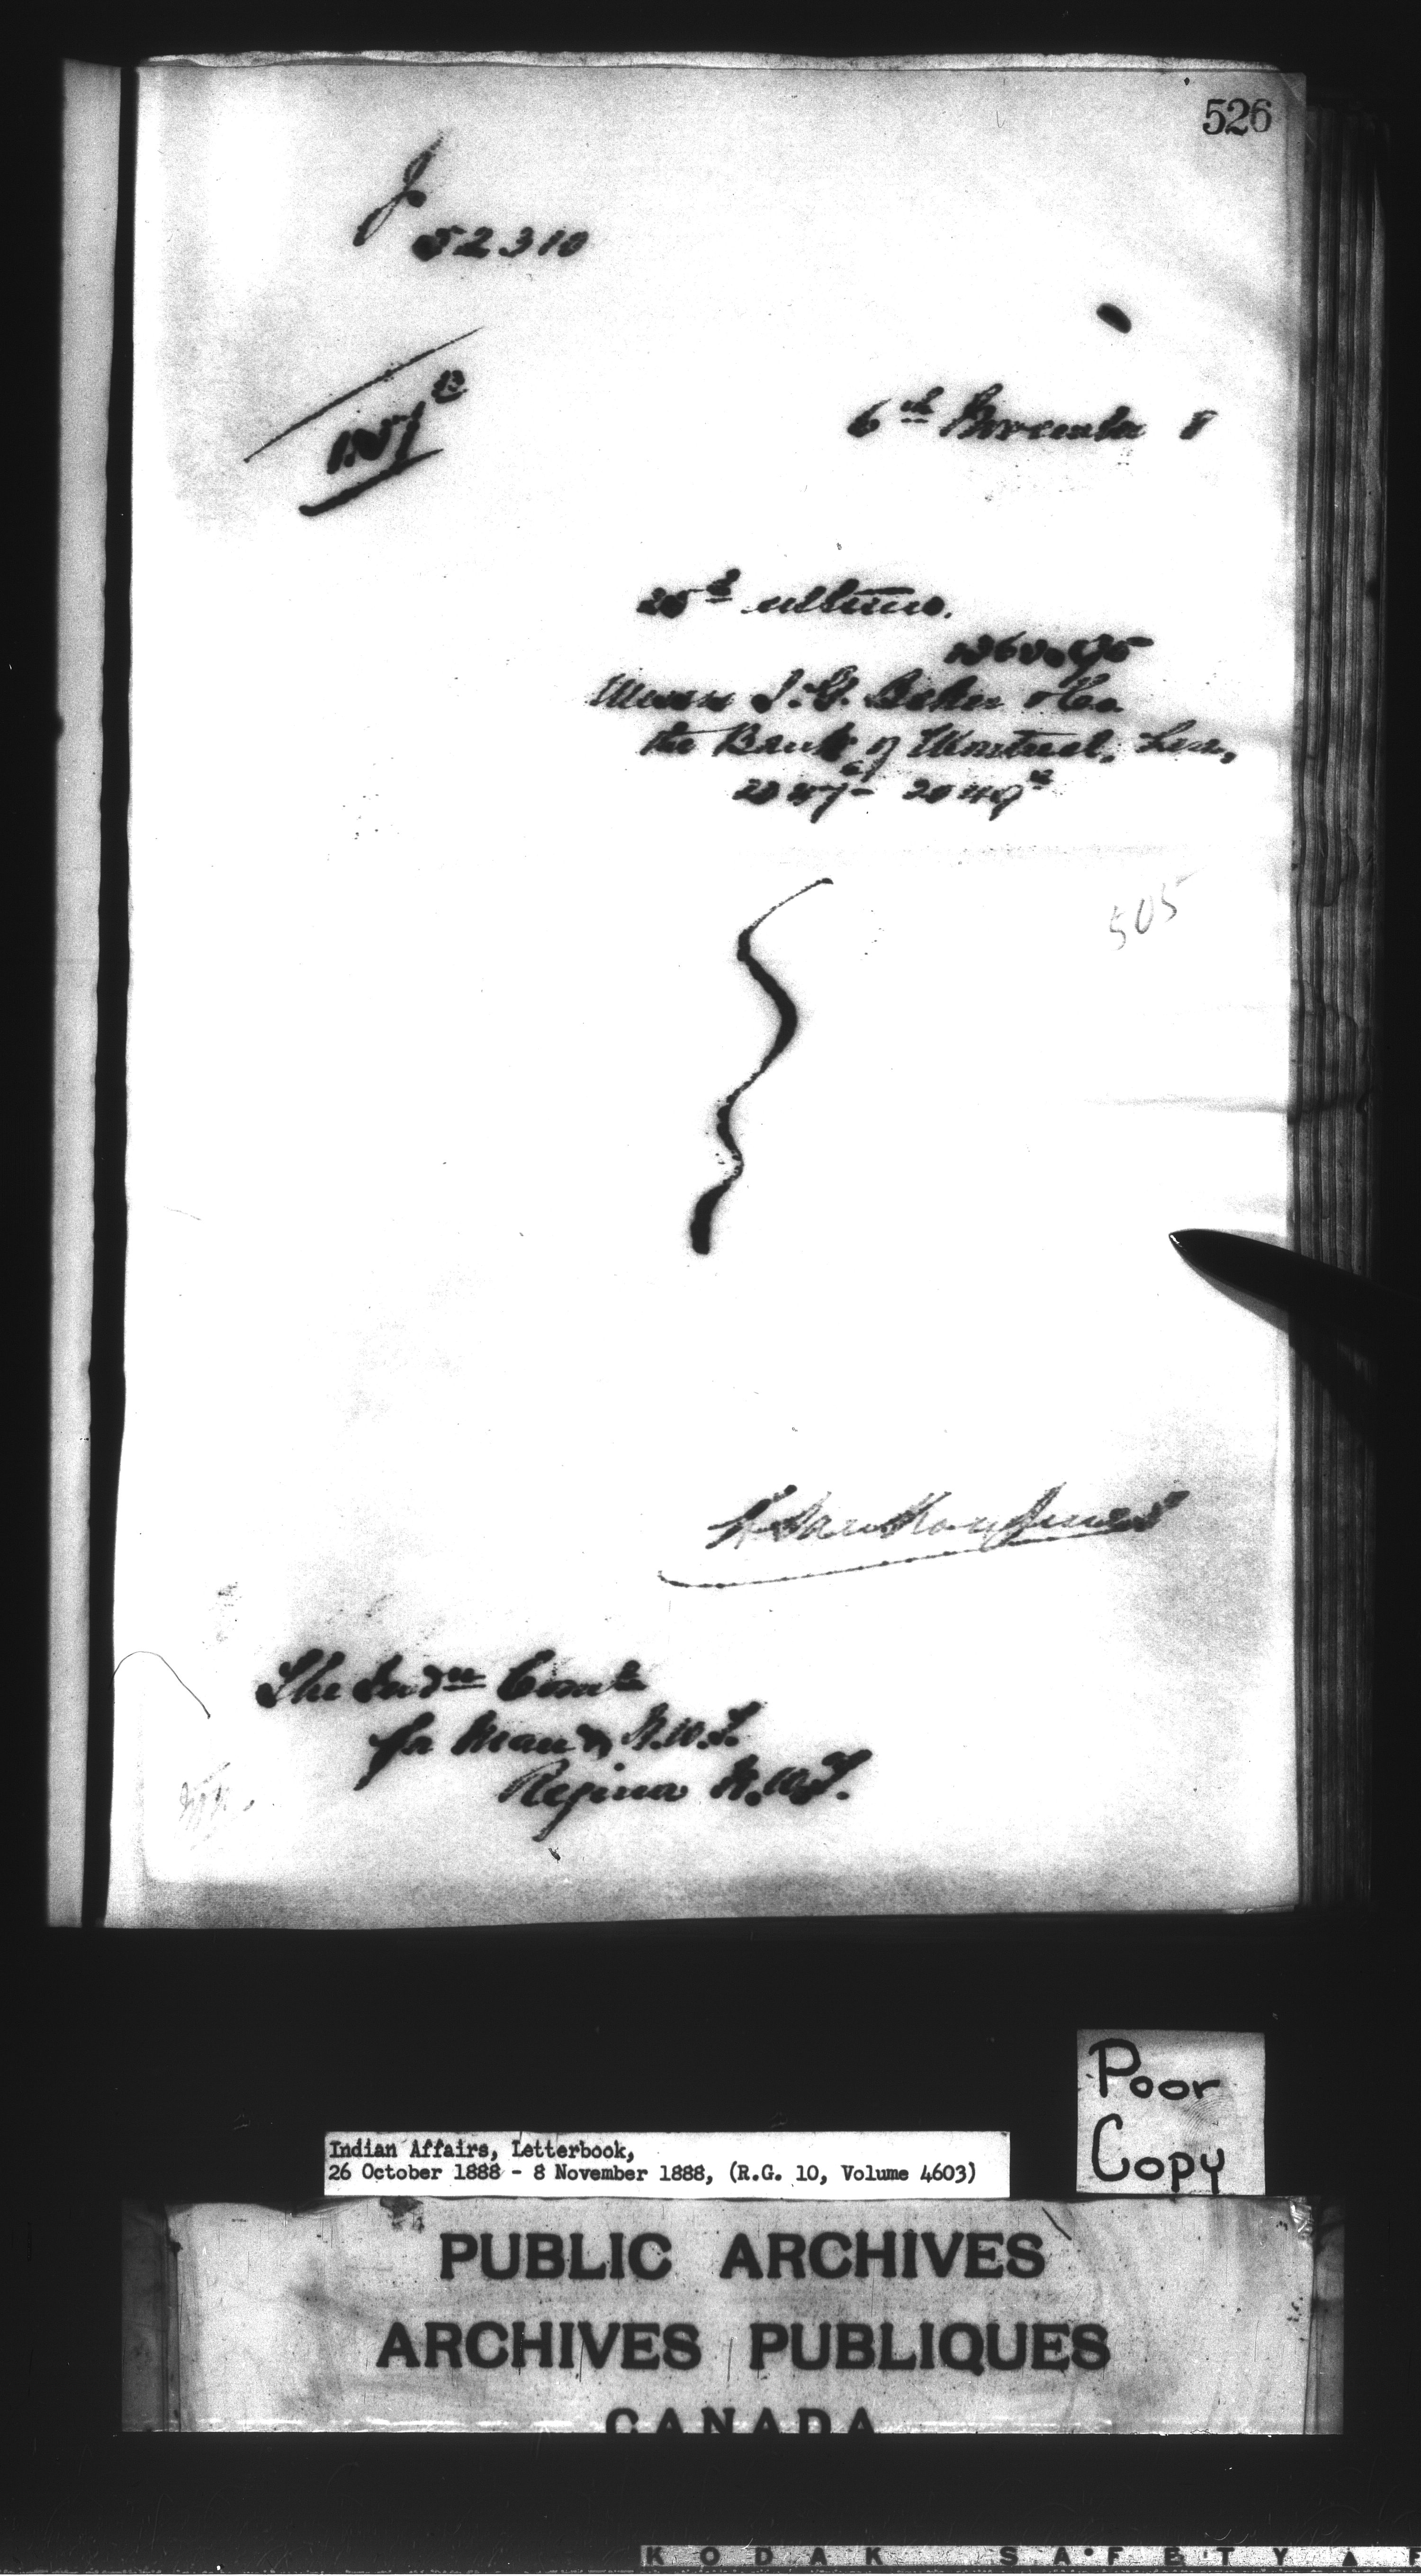 526
J
52310
6th November 8
25th ultimo.
Messrs I. G. Baker & Co.
the Bank of Montreal,
2047- 2049
505
L. Vankoughnet
The Indn Comr
for Man & N.W.T.
Regina N.W.T.
Poor
Copy
Indian Affairs, Letterbook,
26 October 1888 - 8 November 1888, (R.G. 10, Volume 4603)
PUBLIC ARCHIVES
ARCHIVES PUBLIQUES
CANADA
KODAK SAFETY